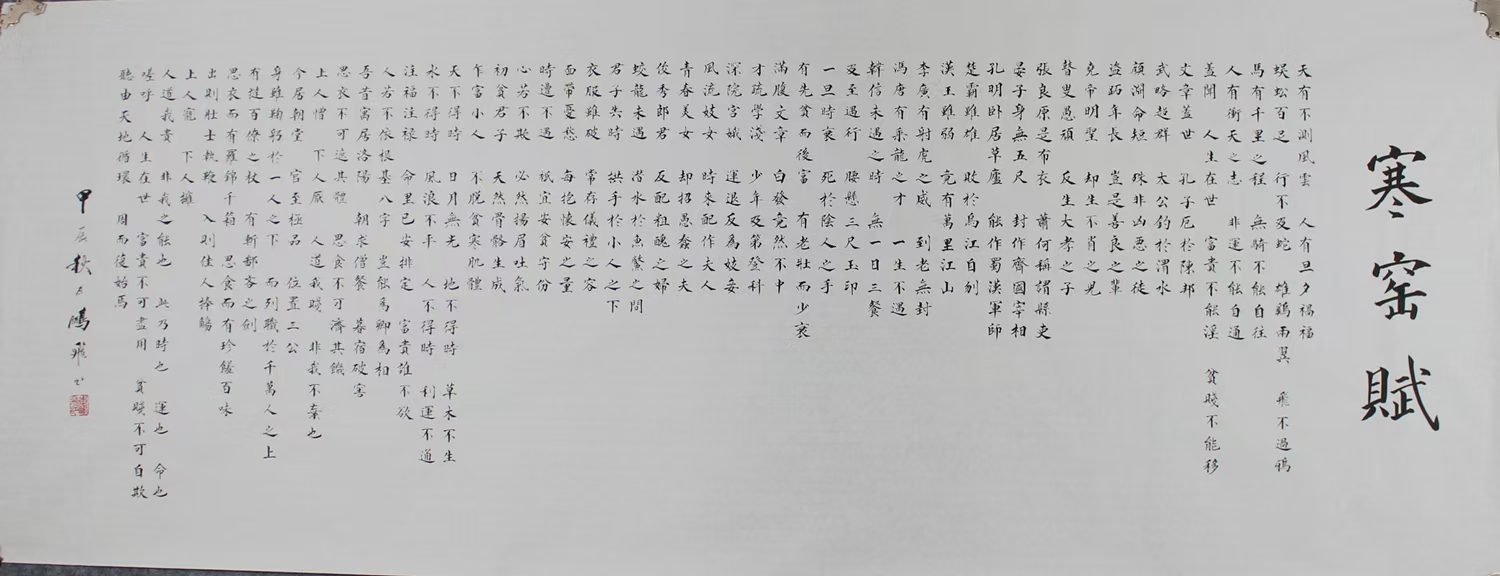 寒窑賦
天有不測風雲　人有旦夕禍福
蜈蚣百足　行不及蛇　雄鷄兩翼　飛不過鴉
馬有千里之程　無騎不能自往
人有衝天之志　非運不能自通
蓋聞　人生在世　富貴不能淫　貧賤不能移
文章蓋世　孔子厄於陳邦
武略超群　太公釣於渭水
顔淵命短　殊非凶惡之徒
盜跖年長　豈是善良之輩
堯帝明聖　却生不肖之兒
瞽叟愚頑　反生大孝之子
張良原是布衣　蕭何稱謂縣吏
晏子身無五尺　封作齊國宰相
孔明卧居草廬　能作蜀漢軍師
楚霸雖雄　敗於烏江自刎
漢王雖弱　竟有萬里江山
李廣有射虎之威　到老無封
馮唐有乘龍之才　一生不遇
韓信未遇之時　無一日三餐
及至遇行　腰懸三尺玉印
一旦時衰　死於陰人之手
有先貧而後富　有老壯而少衰
滿腹文章　白發竟然不中
才疏學淺　少年及第登科
深院宮娥　運退反為妓妾
風流妓女　時來配作夫人
青春美女　却招愚蠢之夫
俊秀郎君　反配粗醜之婦
蛟龍未遇　潛水於魚鱉之間
君子失時　拱手於小人之下
衣服雖破　常存儀禮之容
面帶憂愁　每抱懷安之量
時遭不遇　祇宜安貧守份
心若不欺　必然揚眉吐氣
初貧君子　天然骨骼生成
乍富小人　不脫貧寒肌體
天不得時　日月無光　地不得時　草木不生
水不得時　風浪不平　人不得時　利運不通
注福注禄　命里已安排定　富貴誰不欲
人若不依根基八字　豈能為卿為相
吾昔寓居洛陽　朝求僧餐　暮宿破窖
思衣不可遮其體　思食不可濟其饑
上人憎　下人厭　人道我賤　非我不棄也
今居朝堂　官至極品　位置三公
身雖鞠躬於一人之下　而列職於千萬人之上
有撻百僚之杖　有斬鄙吝之劍
思衣而有羅錦千箱　思食而有珍饈百味
出則壯士執鞭　入則佳人捧觴
上人寵　下人擁
人道我貴　非我之能也　此乃時也　運也　命也
嗟呼　人生在世　富貴不可盡用　貧賤不可自欺
聽由天地循環　周而復始焉
甲辰秋月鴻飛書